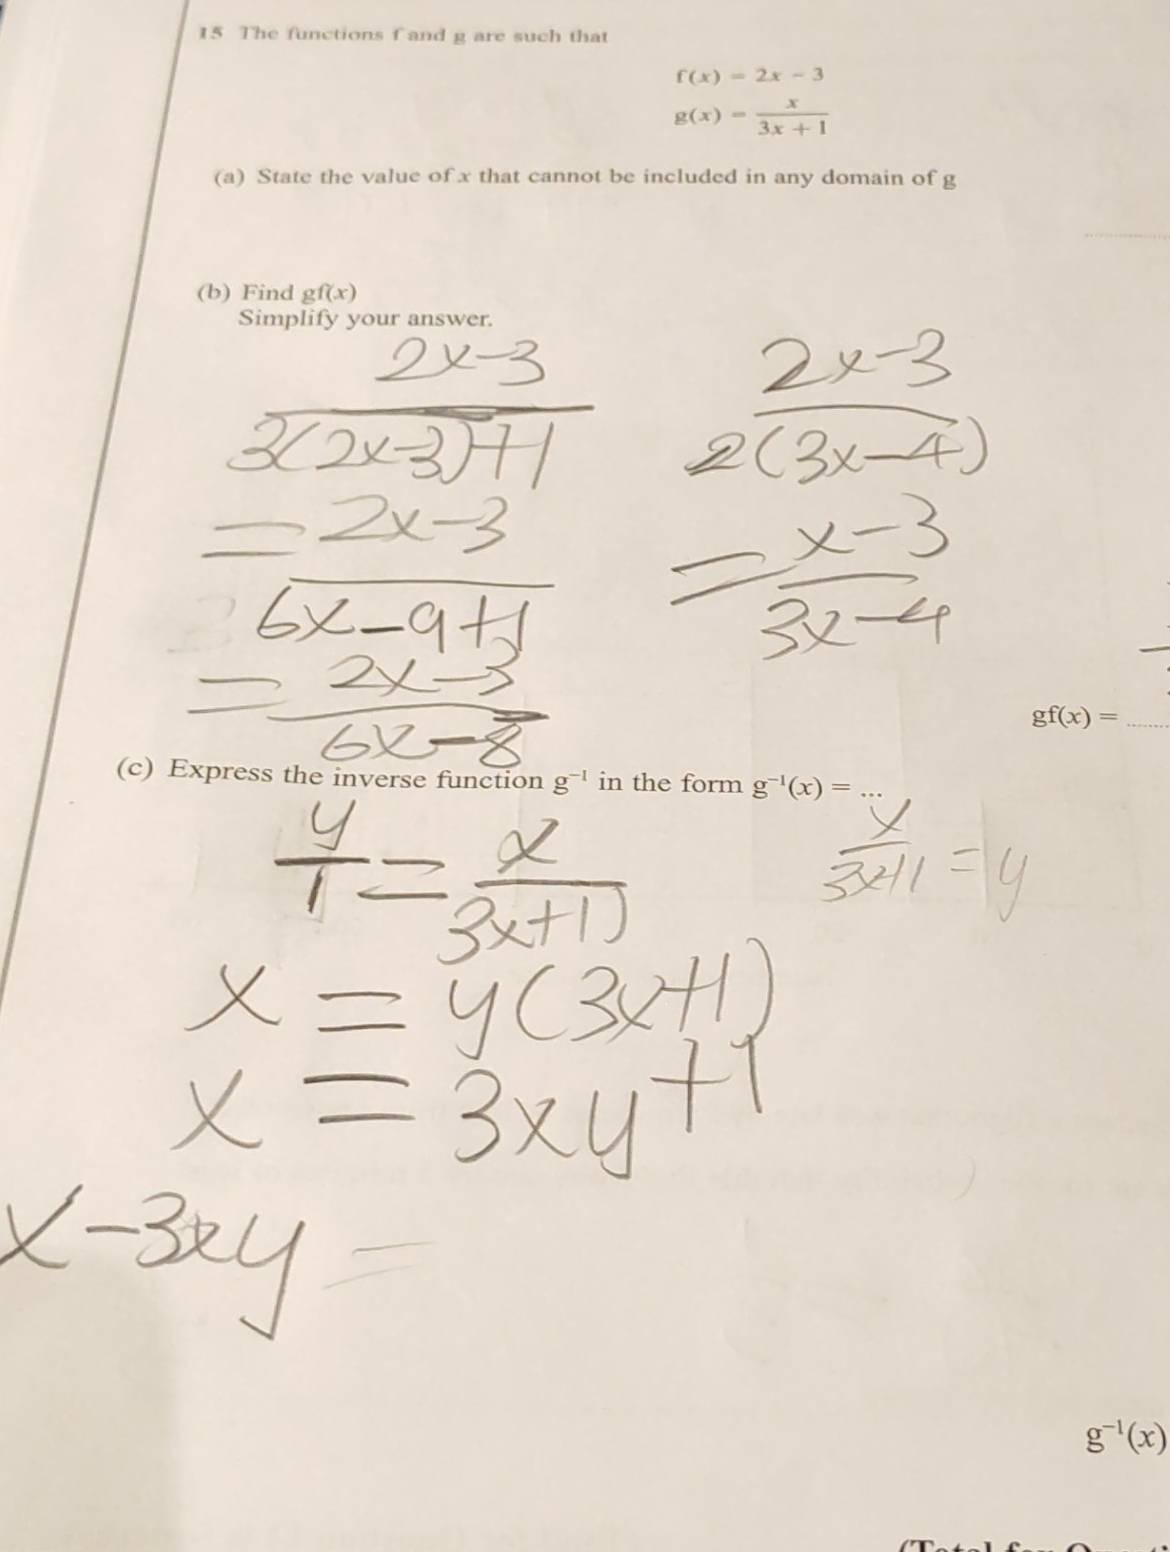 15 The functions f and g are such that
f(x) = 2x - 3
g(x) = x / (3x + 1)
(a) State the value of x that cannot be included in any domain of g
(b) Find gf(x)
Simplify your answer.
2x-3
3(2x-3)+1
= 2x-3
6x-9+1
= 2x-3
6x-8
2x-3
2(3x-4)
= x-3
3x-4
gf(x) =
(c) Express the inverse function g⁻¹ in the form g⁻¹(x) = ...
y/1 = x/(3x+1)
x/(3x+1) = y
x = y(3x+1)
x = 3xy+1
x-3xy =
g⁻¹(x)